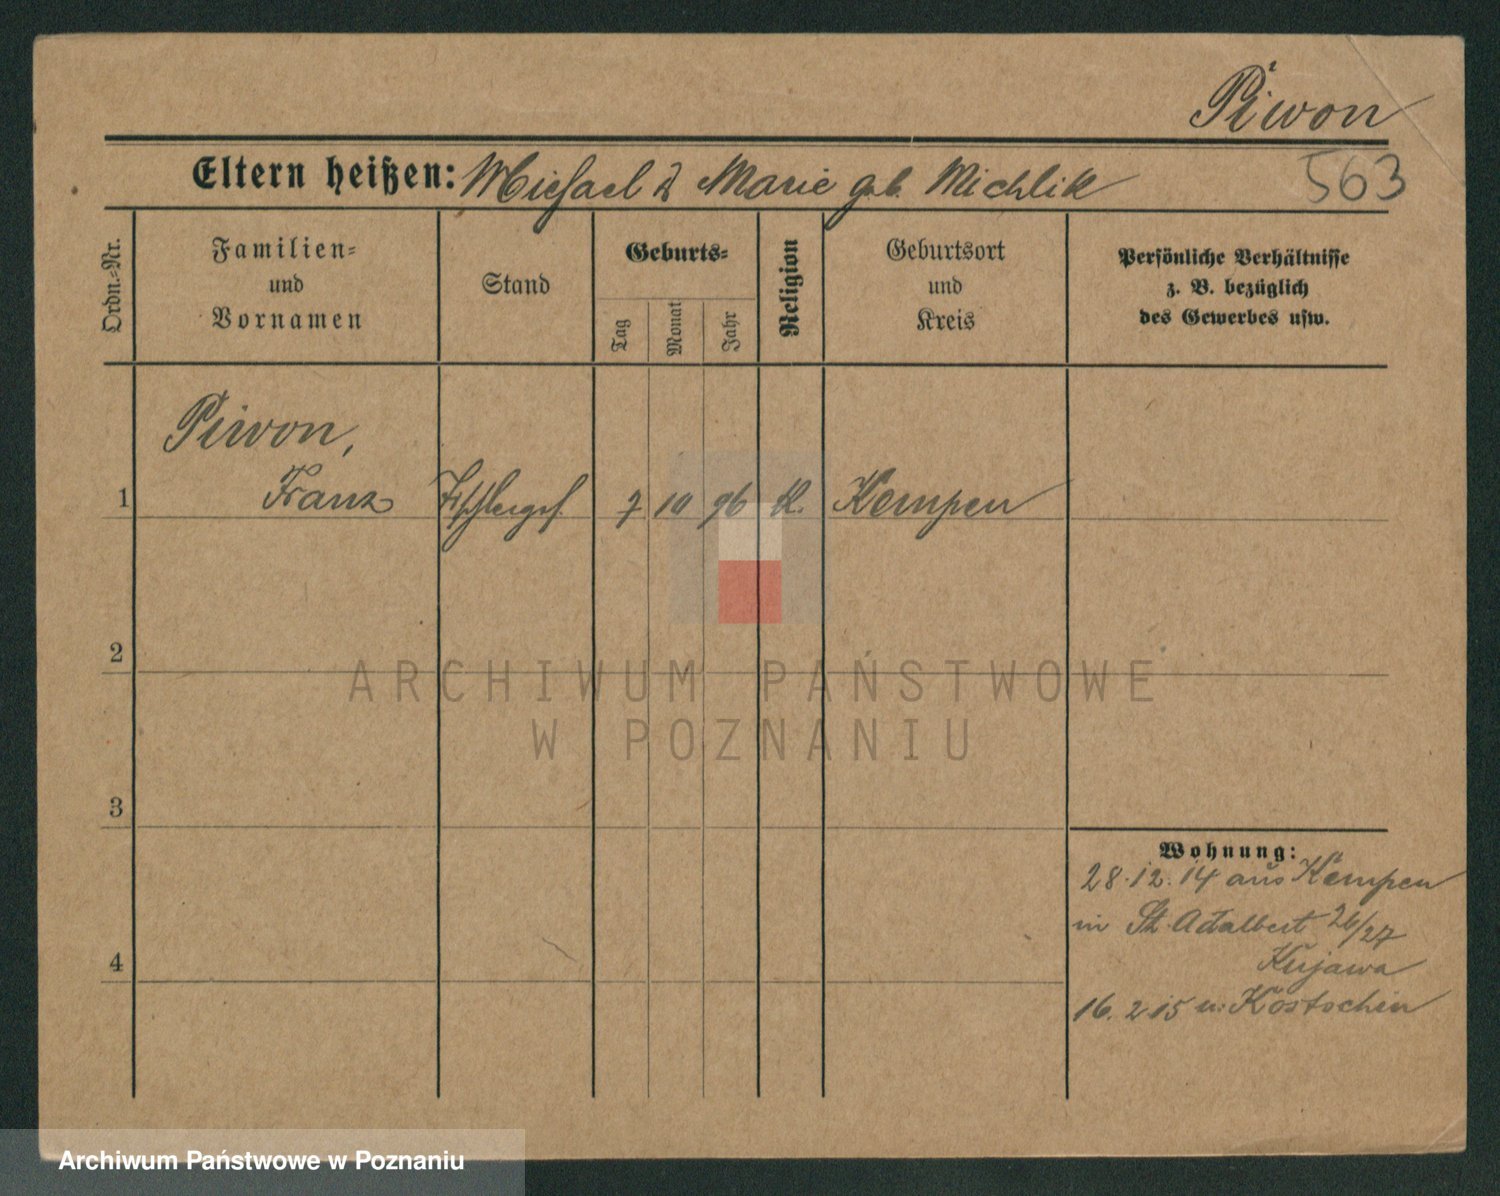 Piwon
Eltern heißen: Michael & Marie geb. Michlik
563
Ordn.-Nr.
Familien-
und
Vornamen
Stand
Geburts-
Tag
Monat
Jahr
Religion
Geburtsort
und
Kreis
Persönliche Verhältnisse
z. B. bezüglich
des Gewerbes usw.
Piwon,
1 Franz 7 10 96 K. Kempen
2
3
4
Wohnung:
28.12.14 aus Kempen
in St. Adalbert 26/27
Kujawa
16.2.15 n. Kostschin
ARCHIWUM PAŃSTWOWE
W POZNANIU
Archiwum Państwowe w Poznaniu